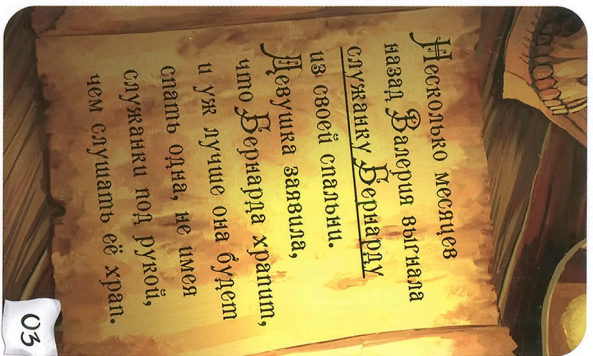 Несколько месяцев
назад Валерия выгнала
служанку Бернарду
из своей спальни.
Девушка заявила,
что Бернарда храпит,
и уж лучше она будет
спать одна, не имея
служанки под рукой,
чем слушать её храп.
03